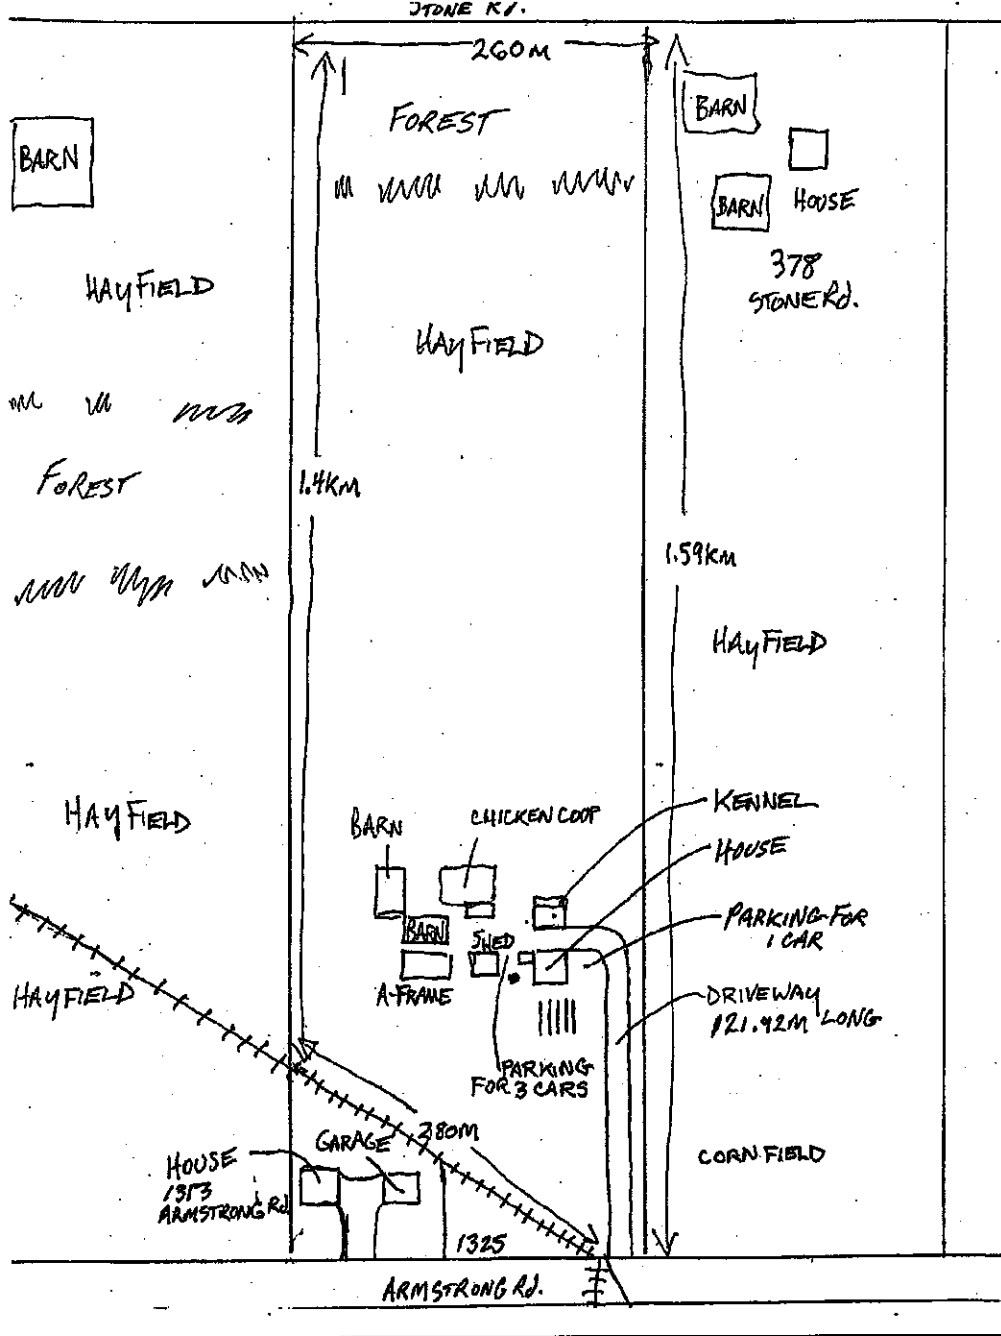 STONE Rd.
260M
FOREST
BARN
BARN
HOUSE
BARN
378
STONE Rd.
HAYFIELD
HAYFIELD
FOREST
1.4KM
1.59KM
HAYFIELD
HAYFIELD
KENNEL
BARN
CHICKEN COOP
HOUSE
PARKING FOR
1 CAR
BARN
SHED
A-FRAME
HAYFIELD
DRIVEWAY
121.92M LONG
PARKING
FOR 3 CARS
GARAGE
HOUSE
ARMSTRONG Rd
CORN FIELD
1325
ARMSTRONG Rd.